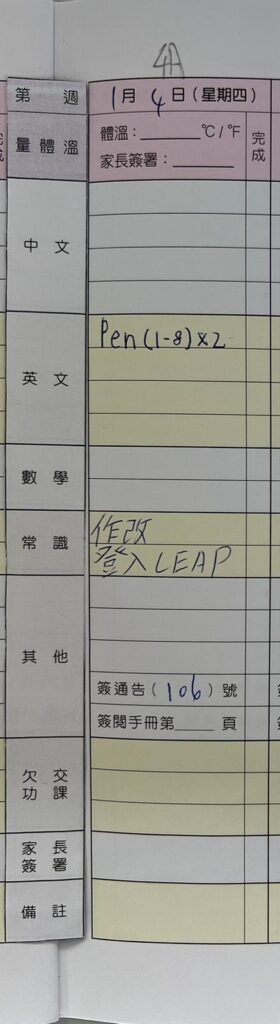 4A
第 週
1月4日(星期四)
完成
量體溫
體溫：______°C/°F
家長簽署：______
完成
中文
英文
Pen(1-8)×2
數學
常識
作改
登入LEAP
其他
簽通告(106)號
簽閱手冊第____頁
欠交功課
家長簽署
備註